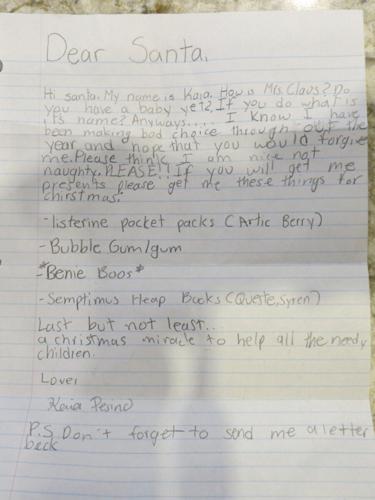 Dear Santa,
Hi santa. My name is Kaia. How is Mrs. Claus? Do
you have a baby yet? If you do what is
its name? Anyways.... I know I have
been making bad choice through out the
year and hope that you would forgive
me. Please think I am nice not
naughty. PLEASE!! If you will get me
presents please get me these things for
chirstmas:
- listerine pocket packs (Artic Berry)
- Bubble Gum/gum
- *Benie Boos*
- Semptimus Heap Books (Queste, Syren)
Last but not least...
a christmas miracle to help all the needy
children.
Love,
Kaia
P.S Don't forget to send me a letter
back